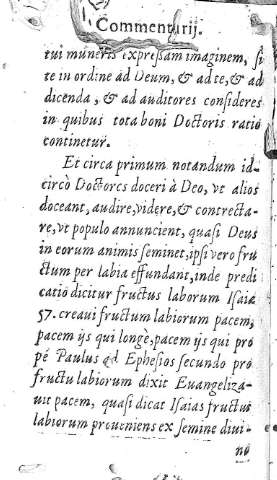 Commentarij.
tui muneris expressam imaginem, si
te in ordine ad Deum, & ad te, & ad
dicenda, & ad auditores consideres
in quibus tota boni Doctoris ratio
continetur.
Et circa primum notandum id-
circò Doctores doceri à Deo, vt alios
doceant, audire, videre, & contrecta-
re, vt populo annuncient, quasi Deus
in eorum animis seminet, ipsi vero fru
ctum per labia effundant, inde predi
catiõ dicitur fructus laborum Isaiæ
57. creaui fructum labiorum pacem,
pacem ijs qui longè, pacem ijs qui pro
pé Paulus ad Ephesios secundo pro
fructu labiorum dixit Euangeliza-
uit pacem, quasi dicat Isaias fructui
labiorum proueniens ex semine diui-
no